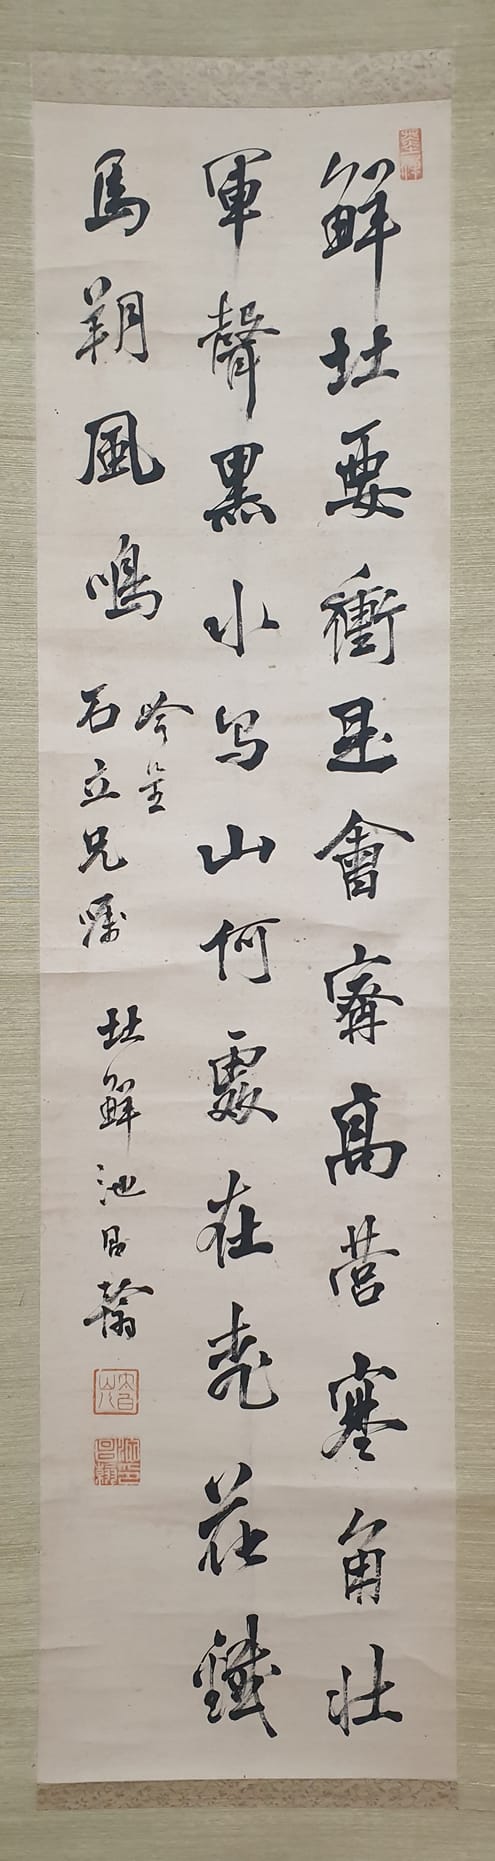 鮮北要衝是會寧高營塞角壯
軍聲黑水烏山何處在花鐵
馬朔風鳴
吟呈
石立兄囑
北鮮池昌翰